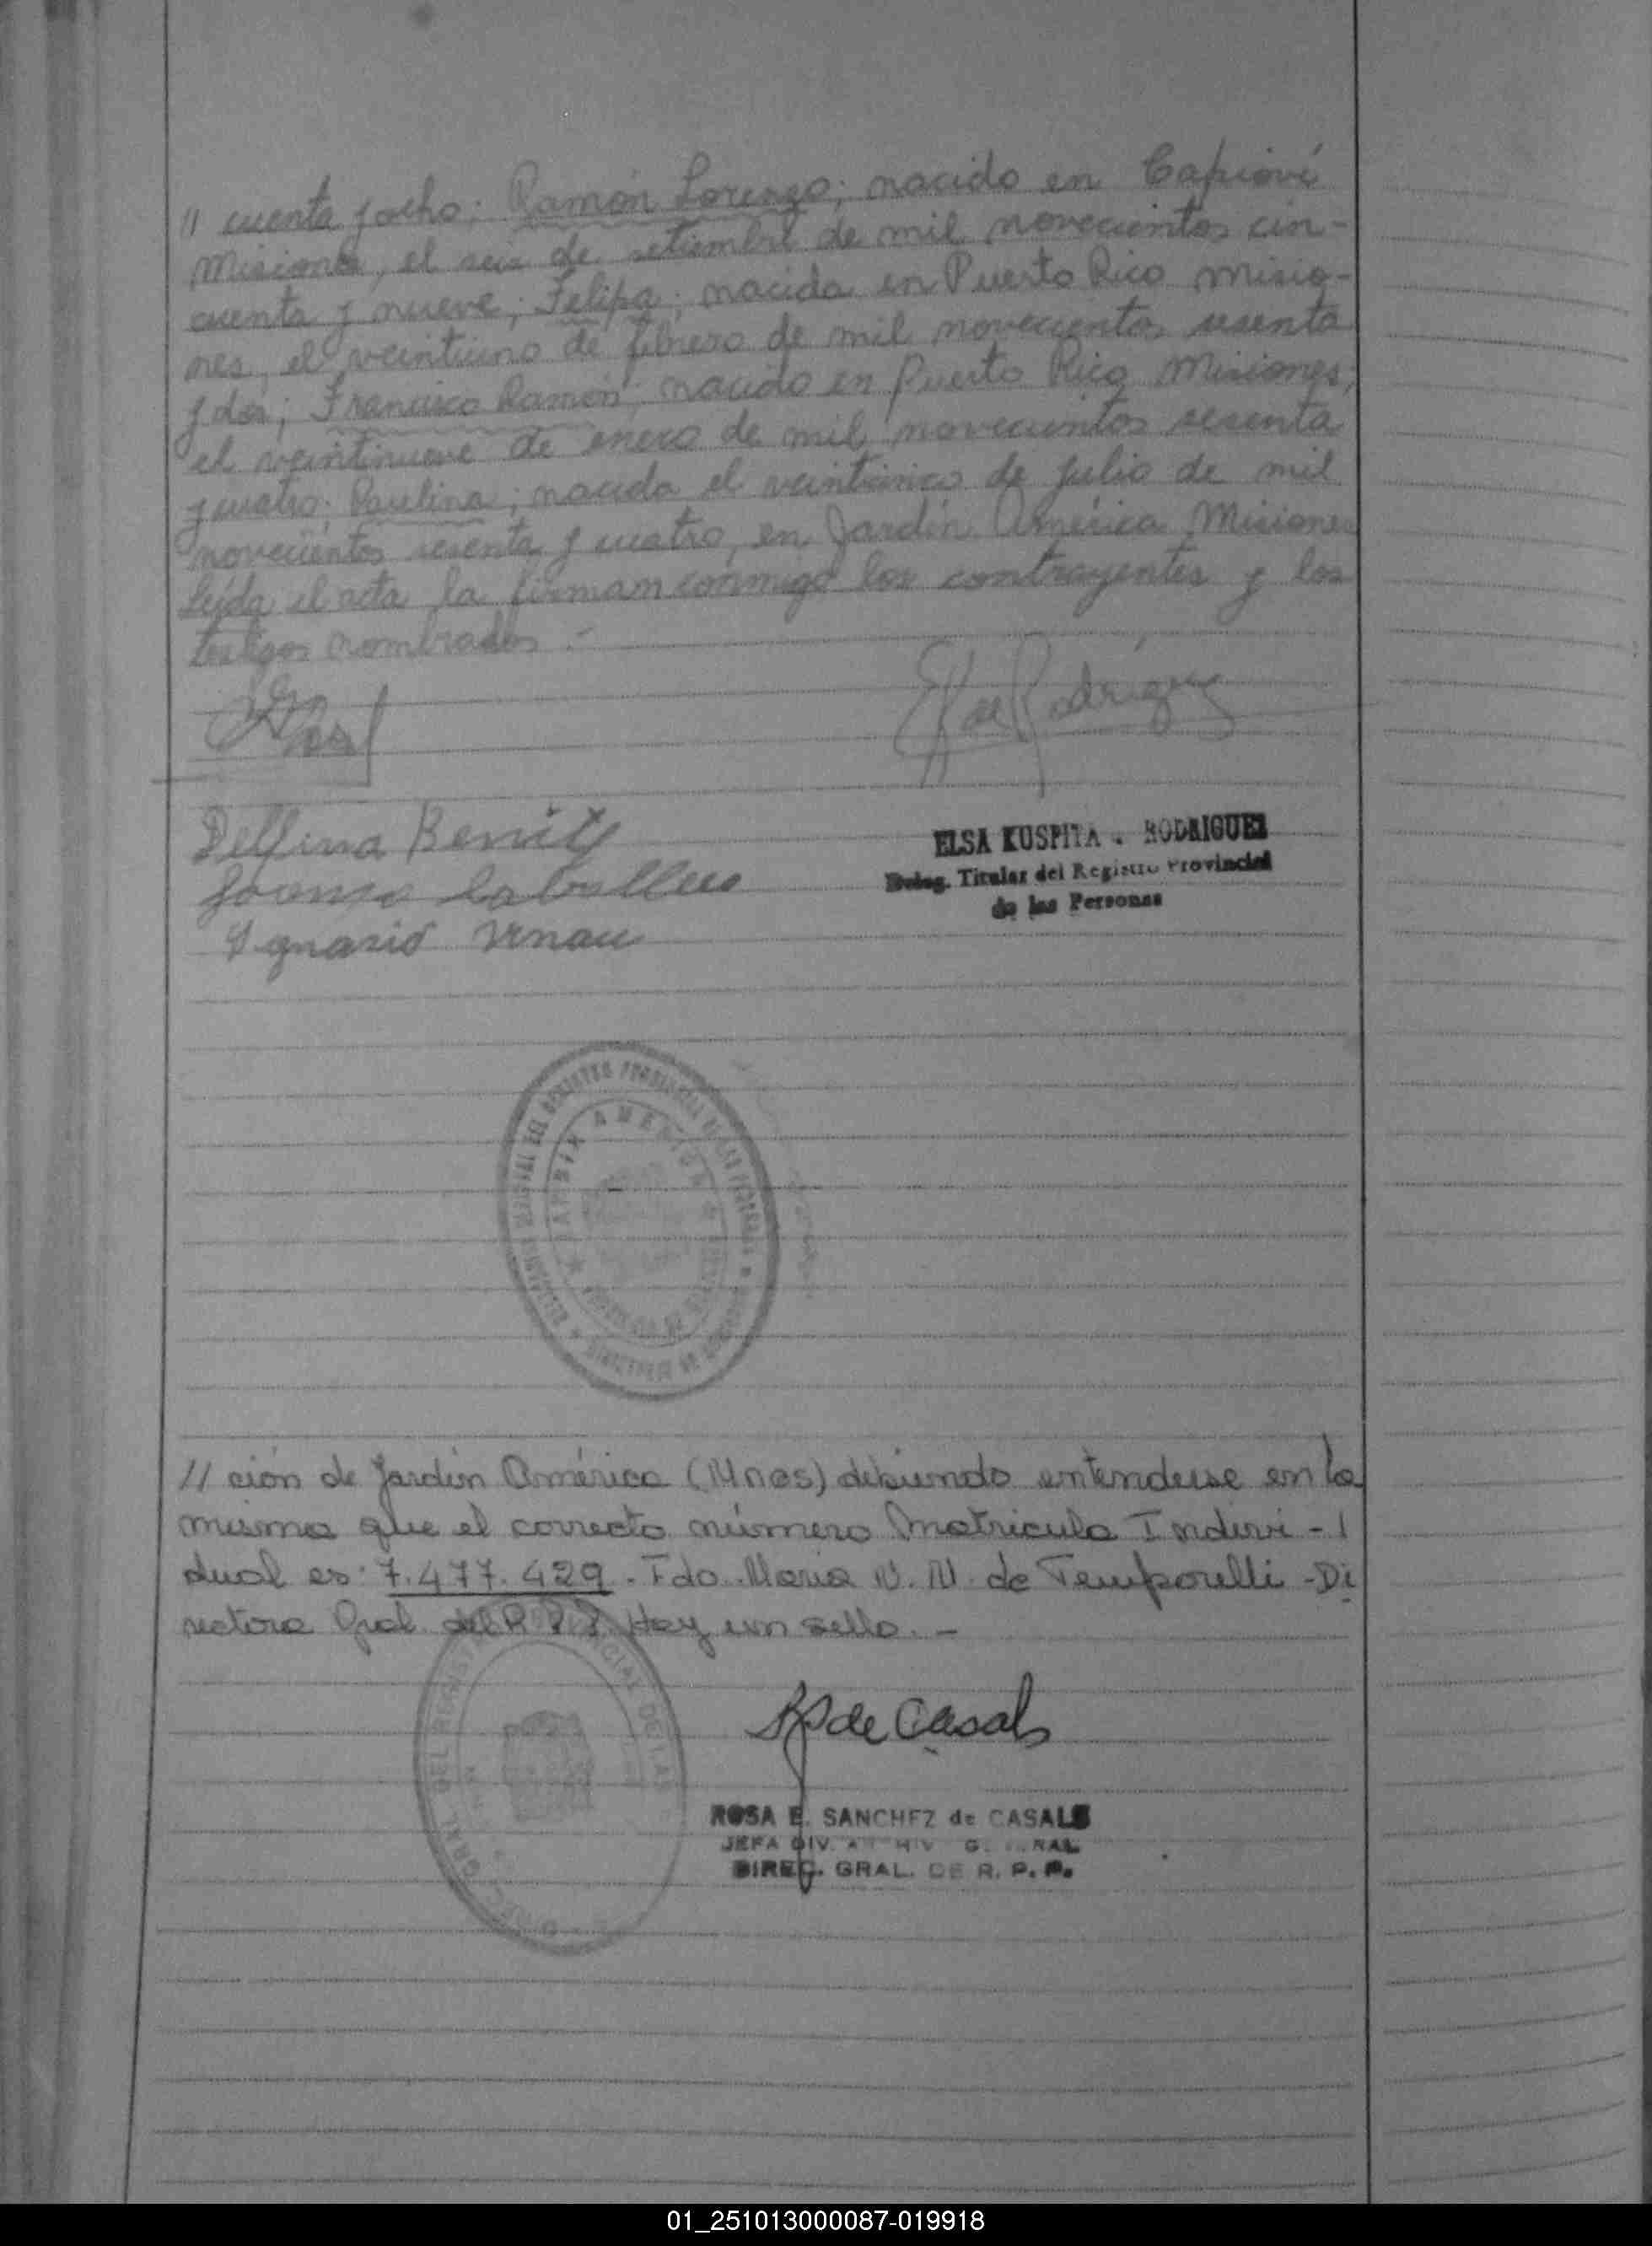 // cuenta y ocho; Ramón Lorenzo; nacido en Capioví
Misiones, el seis de setiembre de mil novecientos cin-
cuenta y nueve; Felipa; nacida en Puerto Rico Misio-
nes, el veintiuno de febrero de mil novecientos sesenta
y dos; Francisco Ramón; nacido en Puerto Rico Misiones,
el veintinueve de enero de mil novecientos sesenta
y cuatro; Paulina; nacida el veinticinco de julio de mil
novecientos sesenta y cuatro, en Jardín América Misiones
Leída el acta la firman conmigo los contrayentes y los
testigos nombrados.-
E K de Rodríguez
Delfina Benitez
ELSA KUSPITA . RODRIGUEZ
Deleg. Titular del Registro Provincial
de las Personas
Caballero
Ygnasio
JARDIN AMERICA
// ción de Jardín América (Mnes) debiendo entenderse en la
misma que el correcto número Matricula Indivi-
dual es: 7.477.429. Fdo. Maria N. N. de Temporelli - Di
rectora Gral. del R P P Hay un sello.-
DIREC. GRAL. DEL REGISTRO PROVINCIAL DE LAS
R P de Casals
ROSA E. SANCHEZ de CASALS
JEFA DIV. ARCHIV GENERAL
DIREC. GRAL. DE R. P. P.
01_251013000087-019918